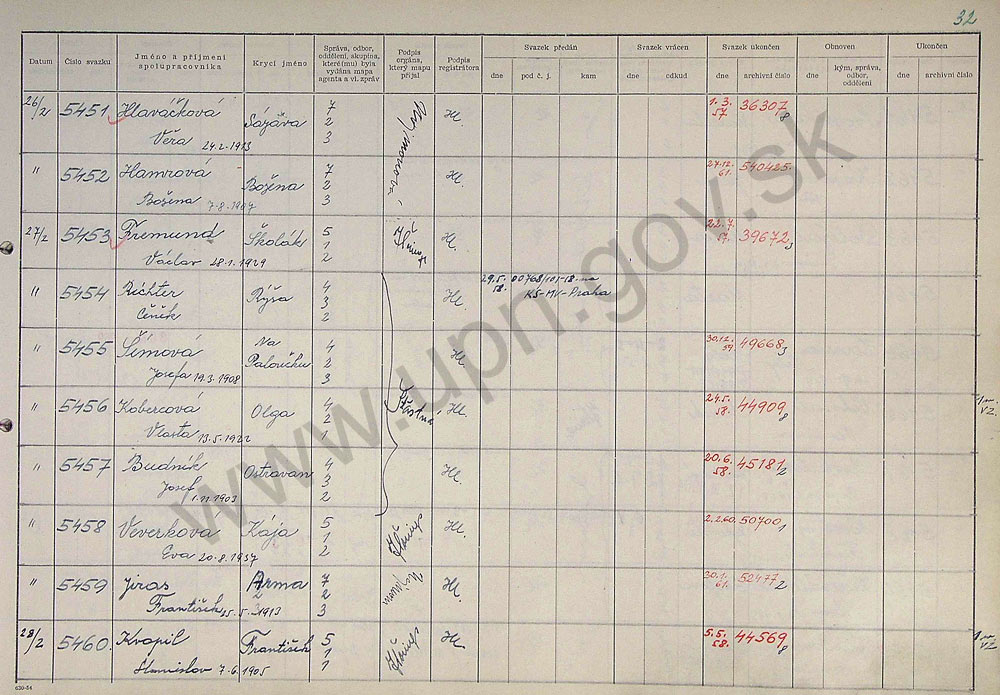 32
Datum Číslo svazku Jméno a příjmení spolupracovníka Krycí jméno Správa, odbor, oddělení, skupina, které(mu) byla vydána mapa agenta a vl. zpráv Podpis orgána, který mapu přijal Podpis registrátora Svazek předán Svazek vrácen Svazek ukončen Obnoven Ukončen
dne pod č. j. kam dne odkud dne archivní číslo dne kým, správa, odbor, oddělení dne archivní číslo
26/2 5451 Hlaváčková Sázava 7 2 3 Hl. 1. 3. 57 36307 8
Věra 24.2.1913
" 5452 Hamrová Božena 7 2 3 Hl. 27.12. 61. 540425
Božena 7.8.1907
27/2 5453 Fremund Školák 5 1 2 Hl. 22.7. 57. 39672 3
Václav 28.1.1929
" 5454 Richter Rýsa 4 3 2 Hl. 29.5. 58. 00768/101-18 na KS-MV-Praha
Čeněk
" 5455 Šímová Na Paloučku 4 2 3 Hl. 30.12. 59. 49668 3
Josefa 19.3.1908
" 5456 Kobercová Olga 4 2 1 Hl. 24.5. 58. 44909 8
Vlasta 13.5.1922
" 5457 Budník Ostravan 4 3 2 Hl. 20.6. 58. 45181 2
Josef 1.11.1903
" 5458 Veverková Kája 5 1 2 Hl. 2.2.60. 50700 1
Eva 20.8.1937
" 5459 Jiras Arma 7 2 3 Hl. 30.1. 61. 52477 2
František 1913
28/2 5460. Kvapil František 5 1 1 Hl. 5.5. 58. 44569 8
Stanislav 7.6.1905
www.upn.gov.sk
630-54